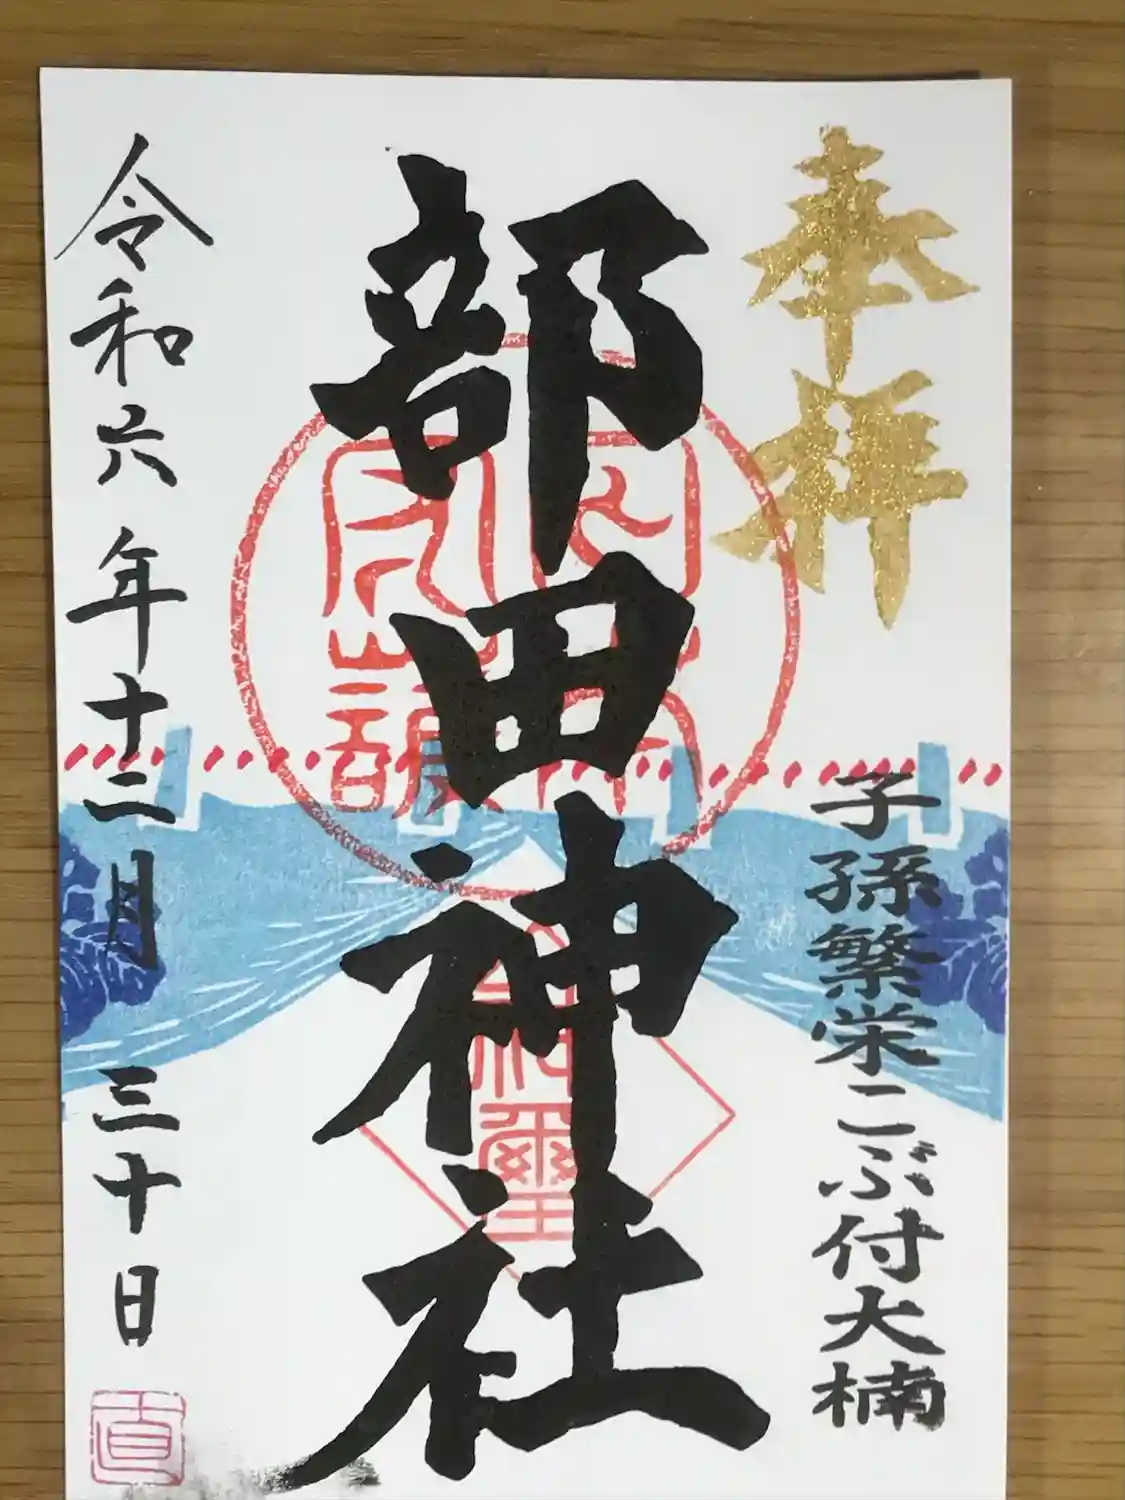 奉拝
子孫繁栄こぶ付大楠
部田神社
令和六年十二月三十日
直